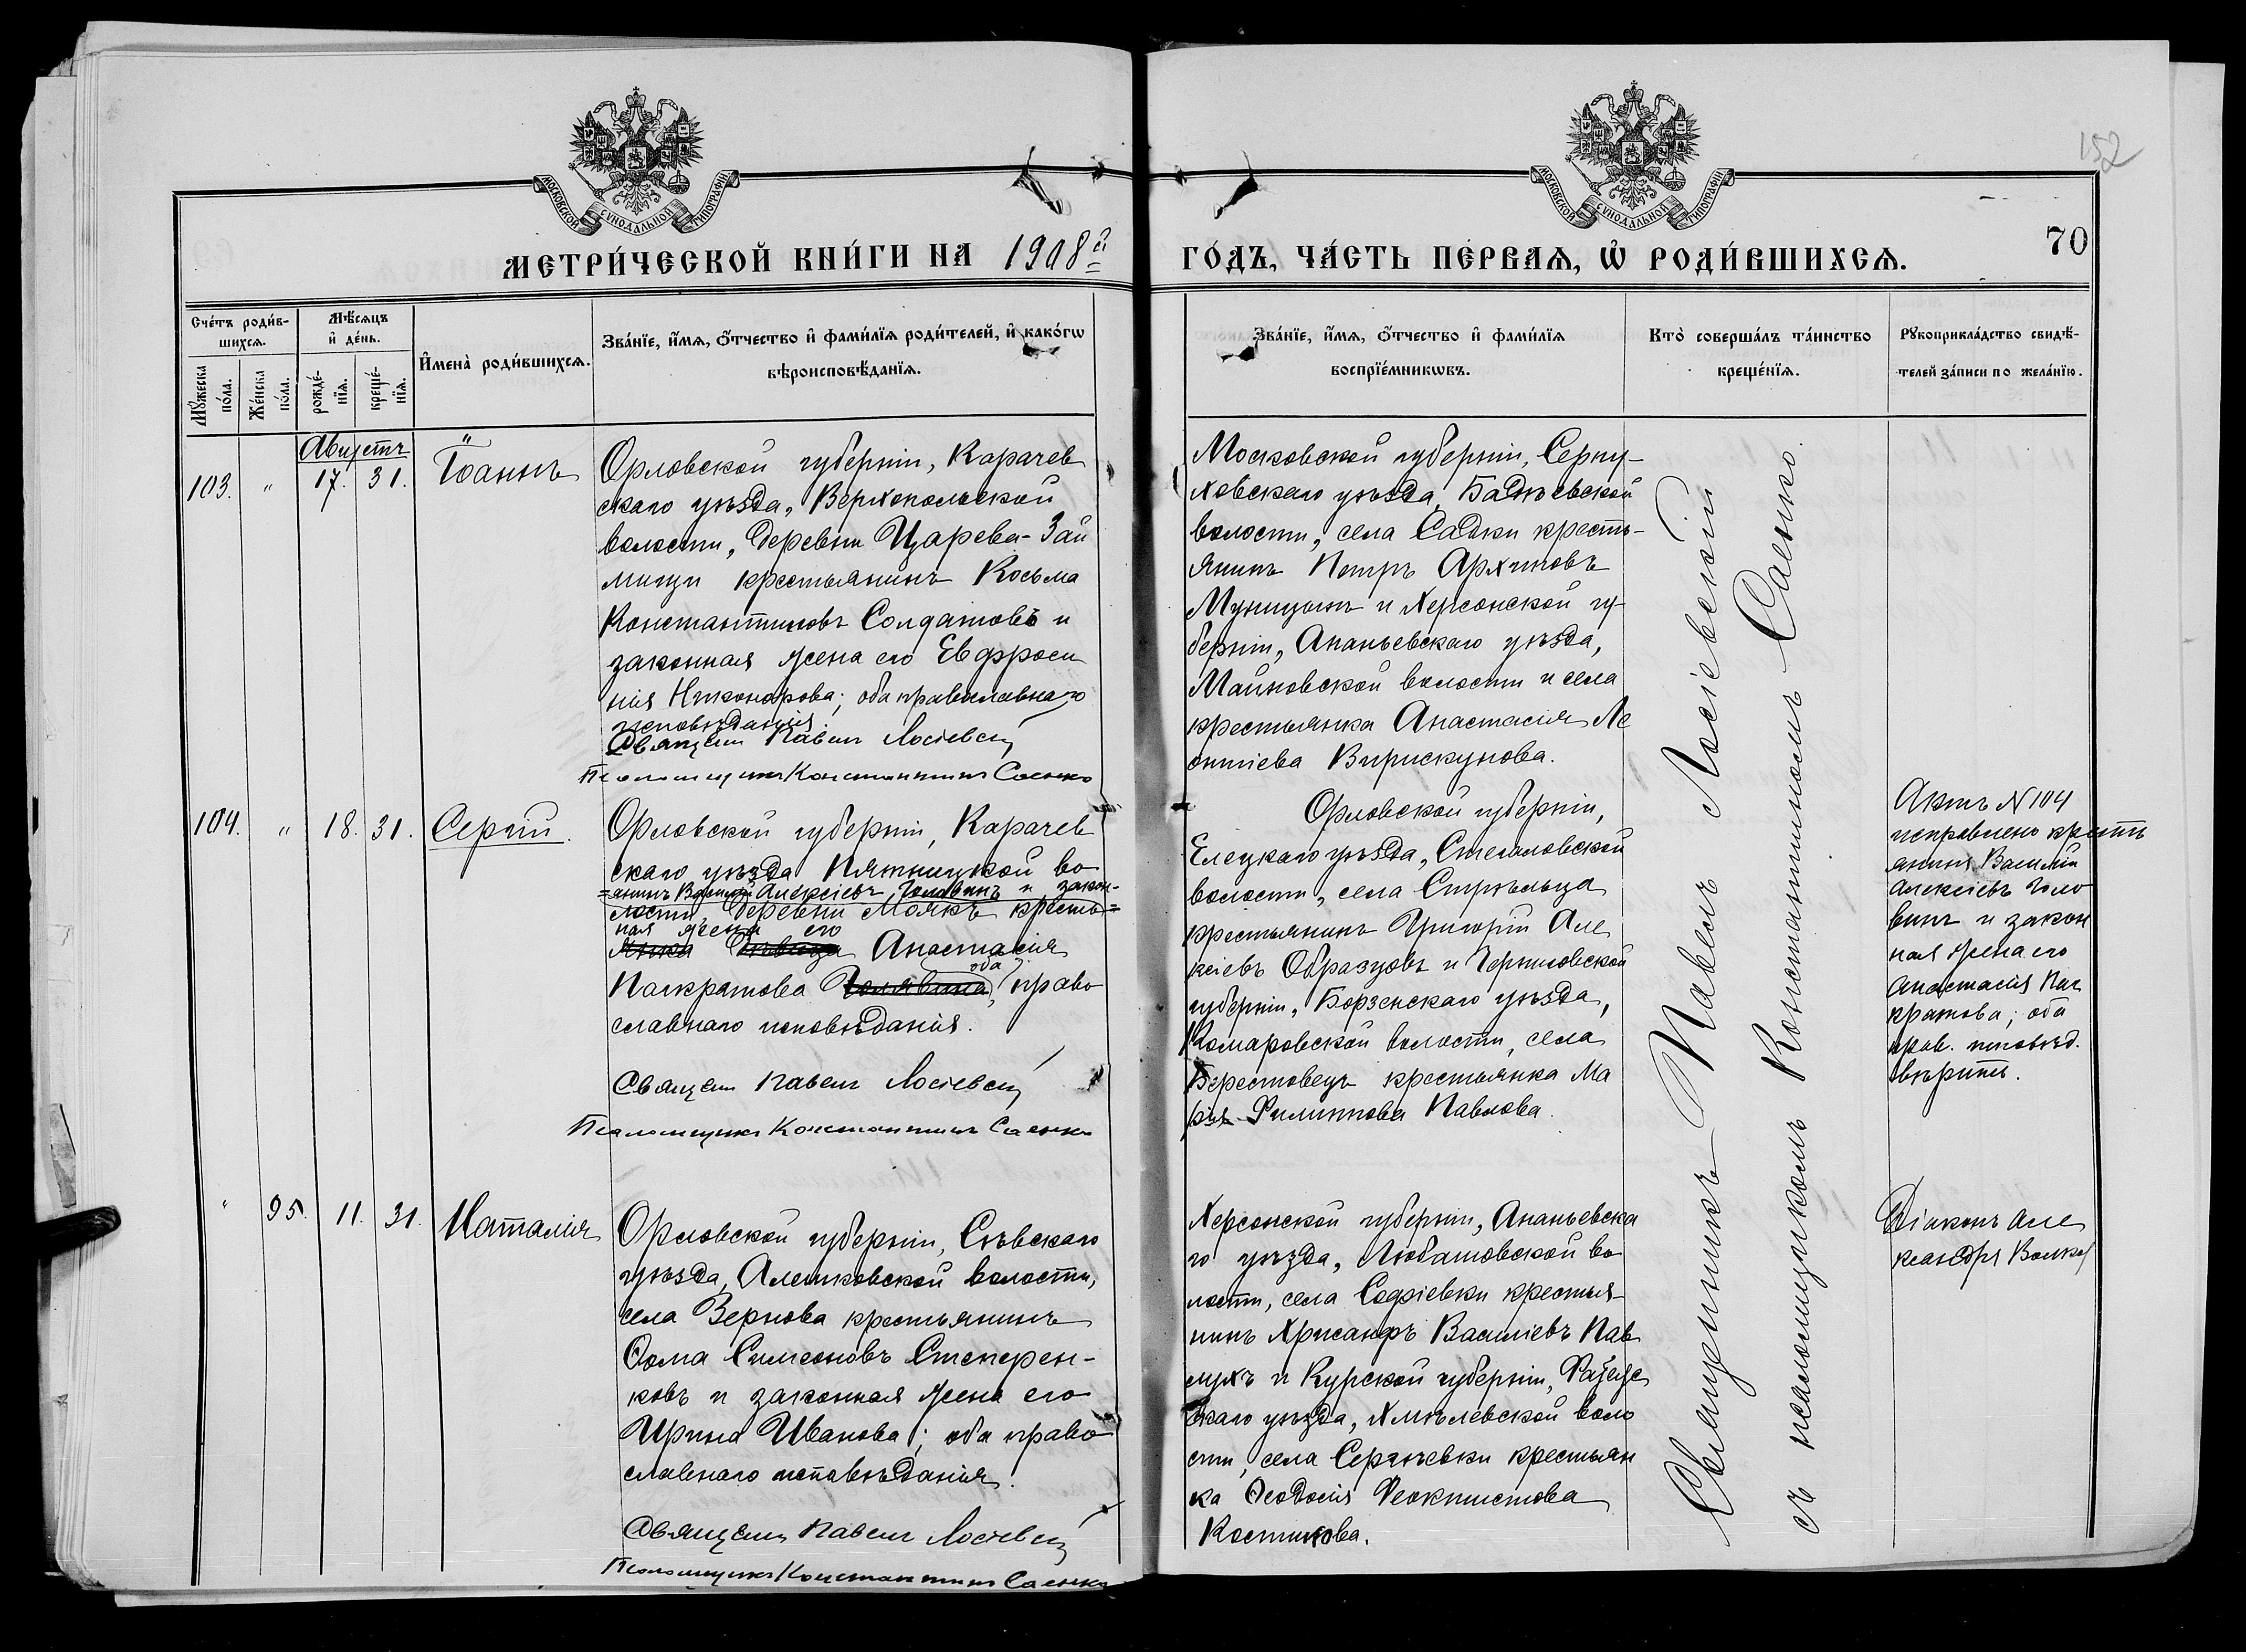 152
МОСКОВСКОЙ СѴНОДАЛЬНОЙ ТИПОГРАФІИ
МОСКОВСКОЙ СѴНОДАЛЬНОЙ ТИПОГРАФІИ
МЕТРИ́ЧЕСКОЙ КНИ́ГИ НА 1908й
ГО́ДЪ, ЧА́СТЬ ПЕ́РВАѦ, Ѽ РОДИ́ВШИХСѦ.
70
Сче́тъ роди́в-
шихсѧ.
Мꙋ́жеска
по́ла.
Же́нска
по́ла.
Мѣ́сѧцъ
и҆ де́нь.
рожде́-
нїѧ.
креще́-
нїѧ.
И҆мена̀ роди́вшихсѧ.
Зва́нїе, и҆́мѧ, ѻ҆́тчество и҆ фами́лїѧ роди́телей, и҆ како́гѡ
вѣроисповѣ́данїѧ.
Зва́нїе, и҆́мѧ, ѻ҆́тчество и҆ фами́лїѧ
воспрїе́мникѡвъ.
Кто̀ соверша́лъ та́инство
креще́нїѧ.
Рꙋкоприкла́дство свидѣ́-
телей за́писи по жела́нїю.
Августъ
103. " 17. 31. Іоаннъ
Орловской губерніи, Карачев
скаго уѣзда, Верхопольской
волости, деревни Царева-Зай
мищи крестьянинъ Косьма
Константиновъ Солдатовъ и
законная жена его Евфроси
нія Никонорова; оба православнаго
исповѣданія.
Священ Павелъ Лосіевскій
Псаломщикъ Константинъ Саенко
Московской губерніи, Серпу-
ховскаго уѣзда, Бадѣевской
волости, села Садки кресть-
янинъ Петръ Архиповъ
Муницынъ и Херсонской гу-
берніи, Ананьевскаго уѣзда,
Майновской волости и села
крестьянка Анастасія Ле
онтіева Вирискунова.
104. " 18. 31. Сергій.
Орловской губерніи, Карачев
скаго уѣзда Пятницкой во
=янинъ Василій Алексіевъ Головинъ и закон-
лости, деревни Маякъ кресть=
ная жена его
янка девица Анастасія
оба
Панкратова Головина, право
славнаго исповѣданія.
Священ Павелъ Лосіевскій
Псаломщикъ Константинъ Саенко
Орловской губерніи,
Елецкаго уѣзда, Стегаловской
волости, села Стрѣльца
крестьянинъ Григорій Але
ксіевъ Образцовъ и Черниговской
губерніи, Борзенскаго уѣзда,
Комаровской волости, села
Берестовецъ крестьянка Ма
рія Филиппова Павлова.
Актъ N 104
исправлено кресть
янинъ Василій
Алексіевъ Голо
винъ и закон
ная жена его
Анастасія Пан
кратова; оба
прав. исповѣд.
вѣрить.
" 95. 11. 31. Наталія
Орловской губерніи, Сѣвскаго
уѣзда, Алешковской волости,
села Зернова крестьянинъ
Ѳома Симеоновъ Степерен-
ковъ и законная жена его
Ирина Иванова; оба право
славнаго исповѣданія.
Священ Павелъ Лосіевскій
Псаломщикъ Константинъ Саенко
Херсонской губерніи, Ананьевска
го уѣзда, Любашовской во
лости, села Софіевки крестья-
нинъ Хрисанфъ Василіевъ Пав
лухъ и Курской губерніи,
скаго уѣзда, Хмѣлевской воло
сти, села Сергѣевки крестьян
ка Ѳеодосія Феоктистова
Костикова.
Діаконъ Але
ксандръ Волков
Священникъ Павелъ Лосіевскій
съ псаломщикомъ Константиномъ Саенко.